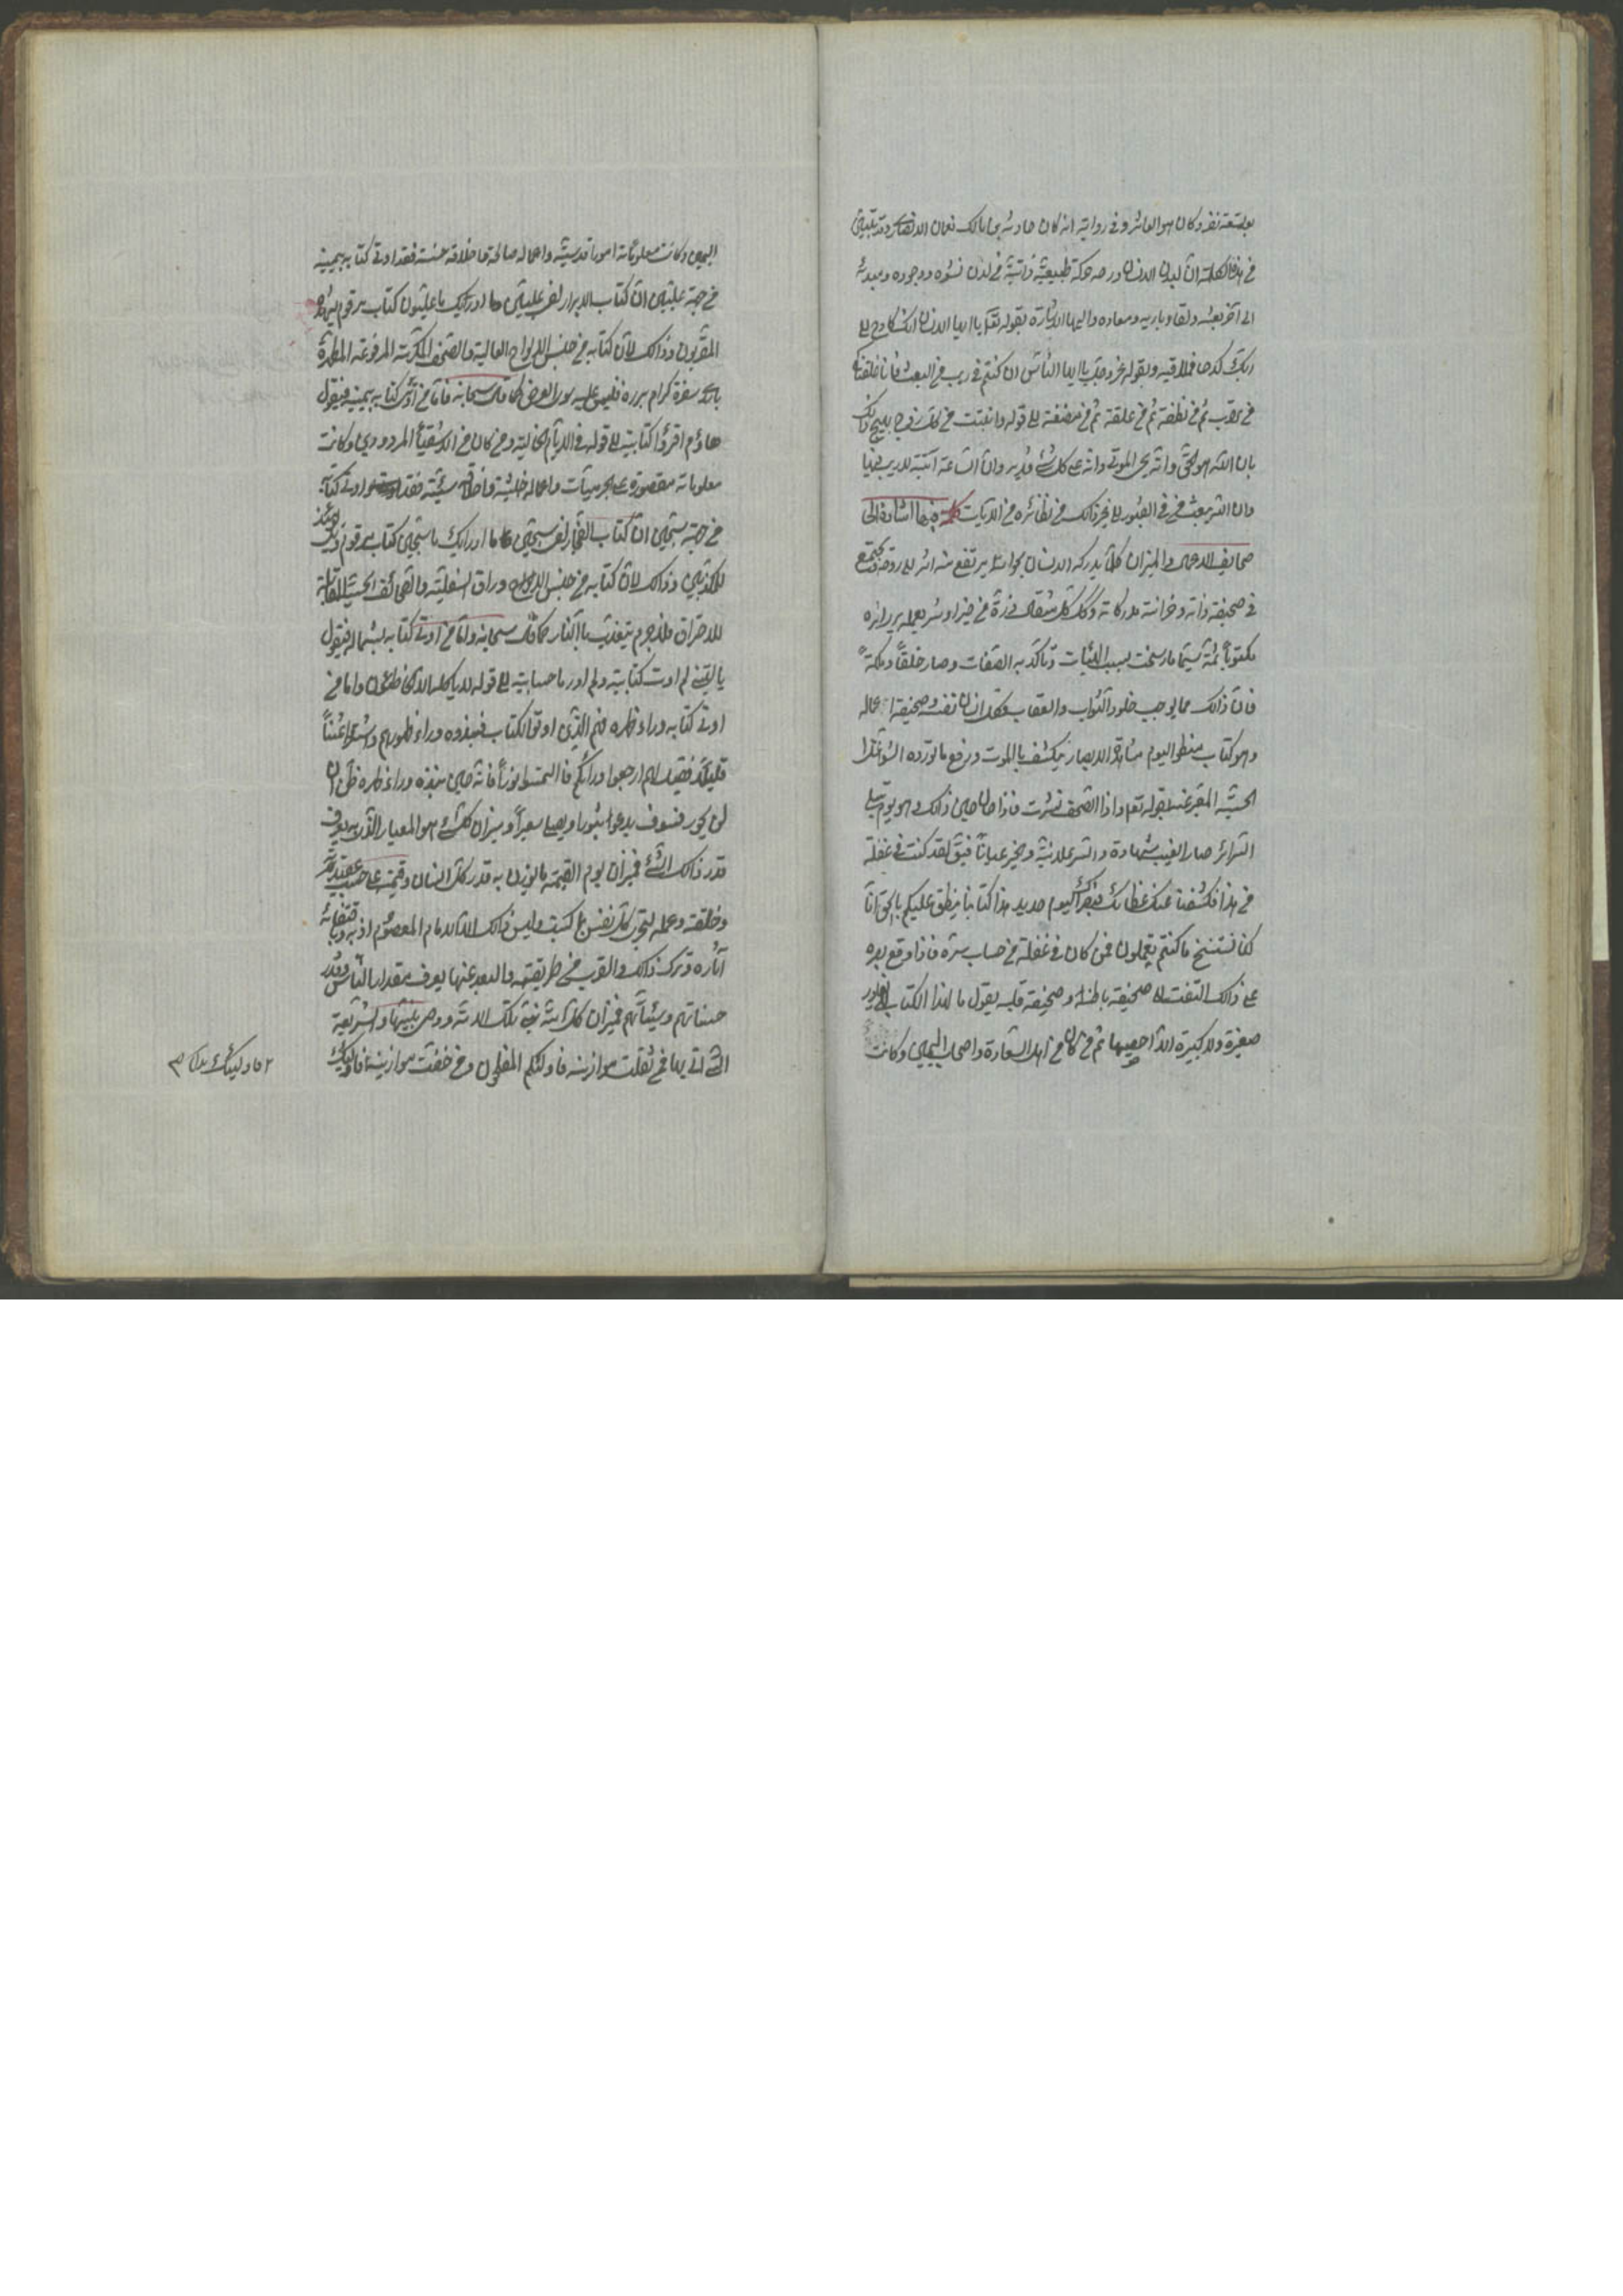 بعد متعة نفر وكان هو العاشر وفى رواية انه كان حارثة بن مالك نعمان الانصارى وقد تبين
فى هذه الكلمة ان لبدن الانسان وروحه حركة طبيعيّة ذاتيّة من لدن نشوه ووجوده ومبدئه
الى آخر بعثه ولقاء باريه ومعاده واليها الاشارة بقوله تعالى يا ايها الانسان انك كادح الى
ربّك كدحا فملاقيه وبقوله عز وجل يا ايها النّاس ان كنتم فى ريب من البعث فانا خلقناكم
من تراب ثم من نطفة ثم من علقة ثم من مضغة الى قوله وانبتت من كل زوج بهيج ذلك
بان اللّه هو الحقّ وانّه يحى الموتى وانّه على كل شئ قدير وان السّاعة آتية لاريب فيها
وان اللّه يبعث من فى القبور الى غير ذالك من نظائره من الآيات كلمة فيها اشارة الى
صحايف الاعمال والميزان كلّ ما يدركه الانسان بحواسه يرتفع منه اثر الى روحه ويجتمع
فى صحيفة ذاته وخزانة مدركاته وكذلك كل مثقال ذرّة من خير او شر يعمله يرى اثره
مكتوباً ثمّة سيّما ما رسخت بسبب الهيئات وتأكد به الصّفات وصار خلقاً وملكة
فانّ ذالك مما يوجب خلود الثّواب والعقاب فكل انسان نفسه صحيفة اعماله
وهو كتاب منطو اليوم عن مشاهدة الابصار ينكشف بالموت ورفع ما تورده الشّواغل
الحسّيّة المعبّر عنه بقوله تعالى واذا الصّحف نشرت فاذا حان حين ذالك وهو يوم تبلى
السّرائر صار الغيب شهادة والسّر علانية والخبر عياناً فيقال لقد كنت فى غفلة
من هذا فكشفنا عنك غطائك فبصرك اليوم حديد هذا كتابنا ينطق عليكم بالحق انّا
كنا نستنسخ ما كنتم تعملون فمن كان فى غفلة من حساب سرّه فاذا وقع بصره
على ذالك التفت الى صحيفة باطنه وصحيفة قلبه يقول ما لهذا الكتاب لا يغادر
صغيرة ولا كبيرة الاّ احصيها ثم من كان من اهل السّعادة واصحاب اليمين وكانت
اليمين وكانت معلوماته امورا قدسيّة واعماله صالحة واخلاقه حسنة فقد اوتى كتابه بيمينه
من جهة علّيّين انّ كتاب الابرار لفى علّيّين وما ادريك ما علّيّون كتاب مرقوم يشهده
المقرّبون وذالك لانّ كتابه من جنس الالواح العالية والصّحف المكرّمة المرفوعة المطهرة
بايدى سفرة كرام بررة فليس عليه سوء العرض كما قال سبحانه فامّا من اوتى كتابه بيمينه فيقول
هاؤم اقرؤا كتابيه الى قوله فى الايّام الخالية ومن كان من الاشقياء المردودين وكانت
معلوماته مقصورة على الجرميّات واعماله خبيثة واخلاقه سيّئة فقد اوتى كتابه
من جهة سجّين انّ كتاب الفجّار لفى سجّين وما ادراك ما سجّين كتاب مرقوم ويل يومئذ
للمكذبين وذالك لانّ كتابه من جنس الاوراق السّفليّة والصّحائف الحسّيّة القابلة
للاحتراق فلا جرم يتعذب بالنّار كما قال سبحانه وامّا من اوتى كتابه بشماله فيقول
يا ليتنى لم اوت كتابيه ولم ادر ما حسابيه الى قوله لا يأكله الا الخاطئون واما من
اوتى كتابه وراء ظهره فهم الّذين اوتوا الكتاب فنبذوه وراء ظهورهم واشتروا به ثمناً
قليلاً فقيل لهم ارجعوا ورائكم فالتمسوا نوراً فانّه حين نبذه وراء ظهره ظنّ ان
لن يحور فسوف يدعوا ثبورا ويصلى سعيراً وميزان كل شئ هو المعيار الّذى به يعرف
قدر ذالك الشّئ فميزان يوم القيمة ما يوزن به قدر كل انسان وقيمته على حسب عقيدته
وخلقه وعمله لتجزى كل نفس بما كسبت وليس ذالك الا الامام المعصوم اذ به وباقتفاء
آثاره وترك ذالك والقرب من طريقته والبعد عنها يعرف مقدار النّاس وقدر
حسناتهم وسيّئاتهم فميزان كل امّة نبىّ تلك الامّة ووصىّ نبيّها والشّريعة
التى اتى بها فمن ثقلت موازينه فاولئك هم المفلحون ومن خفّت موازينه فاولئك